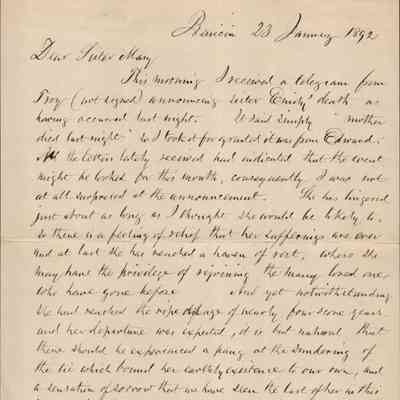 Benicia 23 January 1892
Dear Sister Mary
This morning I received a telegram from
Troy (not signed) announcing sister Emily's death as
having occurred last night. It said simply "mother
died last night" so I took for granted it was from Edward.
All the letters lately received had indicated that the event
might be looked for this month, consequently I was not
at all surprised at the announcement. She has lingered
just about as long as I thought she would be likely to,
so there is a feeling of relief that her sufferings are over
and at last she has reached a haven of rest, where she
may have the privilege of rejoining the many loved ones
who have gone before And yet notwithstanding
she had reached the ripe old age of nearly four score years
and her departure was expected, it is but natural that
there should be experienced a pang at the sundering of
the tie which bound her earthly existence to our own, and
a sensation of sorrow that we have seen the last of her in this